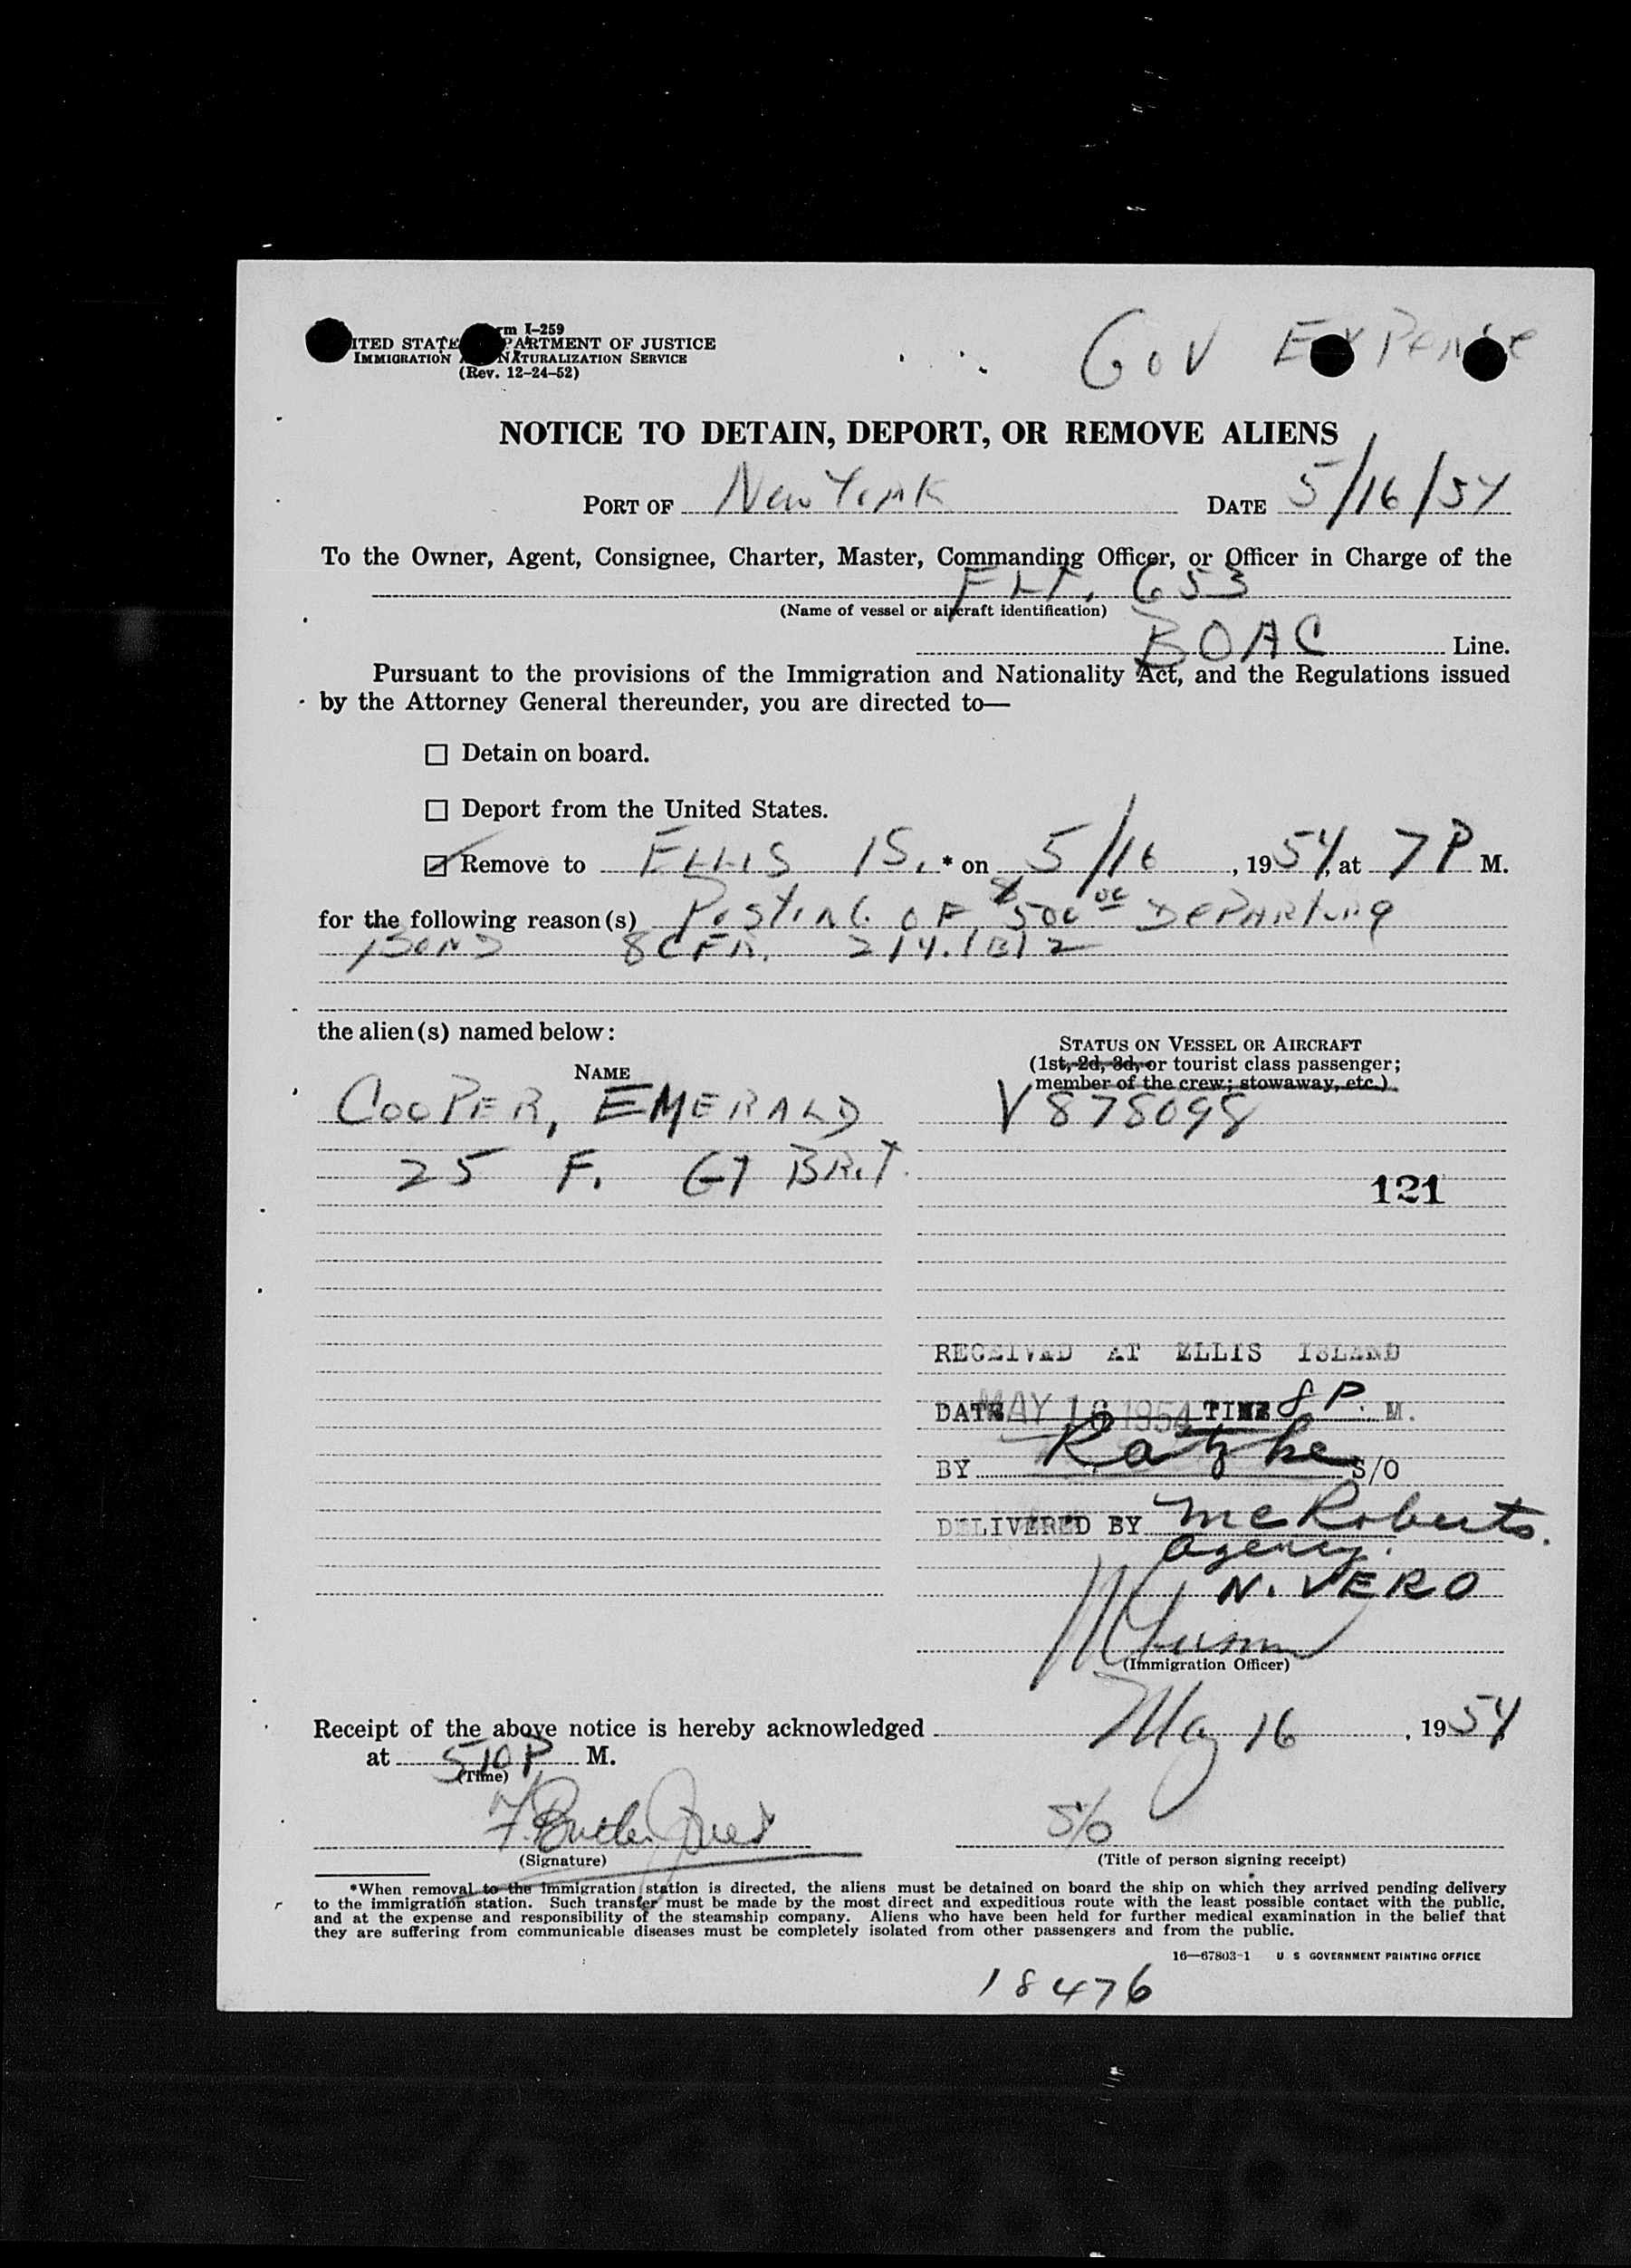 rm I-259
ITED STATE PARTMENT OF JUSTICE
IMMIGRATION NATURALIZATION SERVICE
(Rev. 12-24-52)
GOV EXPENSE
NOTICE TO DETAIN, DEPORT, OR REMOVE ALIENS
PORT OF New York DATE 5/16/54
To the Owner, Agent, Consignee, Charter, Master, Commanding Officer, or Officer in Charge of the
FLT. 653
(Name of vessel or aircraft identification)
BOAC Line.
Pursuant to the provisions of the Immigration and Nationality Act, and the Regulations issued
by the Attorney General thereunder, you are directed to—
☐ Detain on board.
☐ Deport from the United States.
☑ Remove to ELLIS IS. * on 5/16, 1954, at 7 P M.
for the following reason(s) Posting OF $500 00 DEPARTURE
BOND 8 CFR. 214.1B12
the alien(s) named below:
NAME
STATUS ON VESSEL OR AIRCRAFT
(1st, 2d, 3d, or tourist class passenger;
member of the crew; stowaway, etc.)
COOPER, EMERALD V 878098
25 F. GT BRIT.
121
RECEIVED AT ELLIS ISLAND
DATE MAY 16 1954 TIME 8 P. M.
BY Ratzke S/O
DELIVERED BY McRoberts
agency.
N. VERO
(Immigration Officer)
Receipt of the above notice is hereby acknowledged May 16, 1954
at 510 P M.
(Time)
S/O
(Signature) (Title of person signing receipt)
*When removal to the immigration station is directed, the aliens must be detained on board the ship on which they arrived pending delivery
to the immigration station. Such transfer must be made by the most direct and expeditious route with the least possible contact with the public,
and at the expense and responsibility of the steamship company. Aliens who have been held for further medical examination in the belief that
they are suffering from communicable diseases must be completely isolated from other passengers and from the public.
16—67803-1 U S GOVERNMENT PRINTING OFFICE
18476